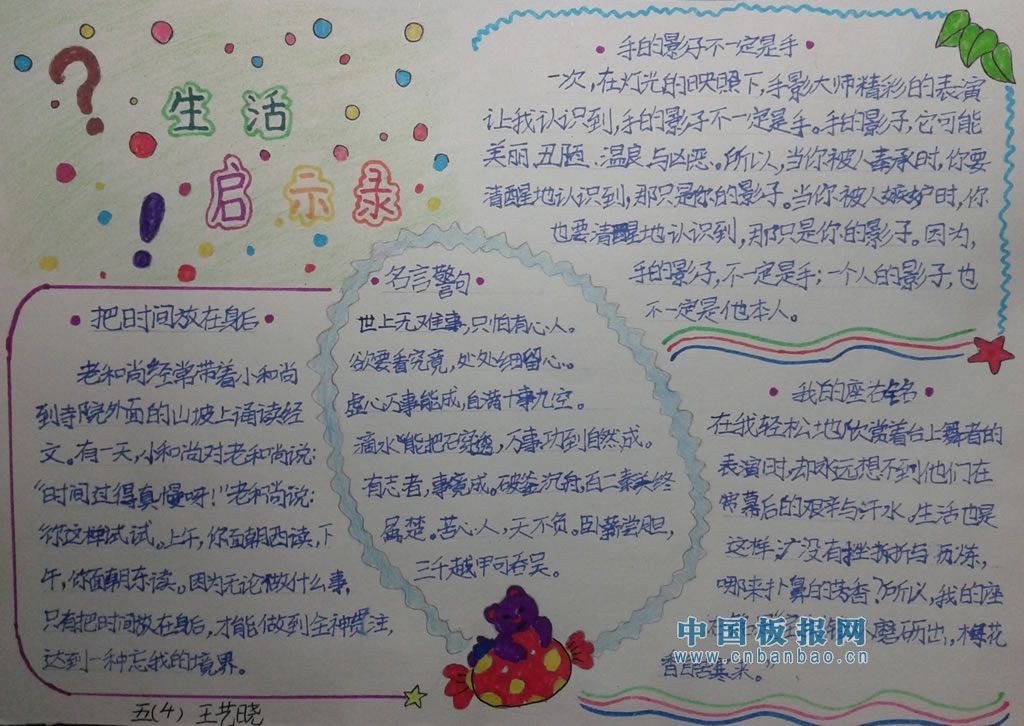 生活
启示录
手的影子不一定是手
一次,在灯光的映照下,手影大师精彩的表演
让我认识到,手的影子不一定是手。手的影子,它可能
美丽、丑陋、温良与凶恶。所以,当你被人奉承时,你要
清醒地认识到,那只是你的影子。当你被人嫉妒时,你
也要清醒地认识到,那只是你的影子。因为,
手的影子,不一定是手;一个人的影子,也
不一定是他本人。
把时间放在身后
老和尚经常带着小和尚
到寺院外面的山坡上诵读经
文。有一天,小和尚对老和尚说:
“时间过得真慢呀!”老和尚说:
“你这样试试。上午,你面朝西读,下
午,你面朝东读。因为无论做什么事,
只有把时间放在身后,才能做到全神贯注,
达到一种忘我的境界。
五(4) 王艺晓
名言警句
世上无难事,只怕有心人。
欲要看究竟,处处细留心。
虚心万事能成,自满十事九空。
滴水能把石穿透,万事功到自然成。
有志者,事竟成。破釜沉舟,百二秦关终
属楚。苦心人,天不负。卧薪尝胆,
三千越甲可吞吴。
我的座右铭
在我轻松地欣赏着台上舞者的
表演时,却永远想不到他们在
幕后的艰辛与汗水。生活也是
这样,没有挫折与历练,
哪来扑鼻的芳香?所以,我的座
磨砺出,梅花
香自苦寒来。”
中国板报网
www.cnbanbao.cn